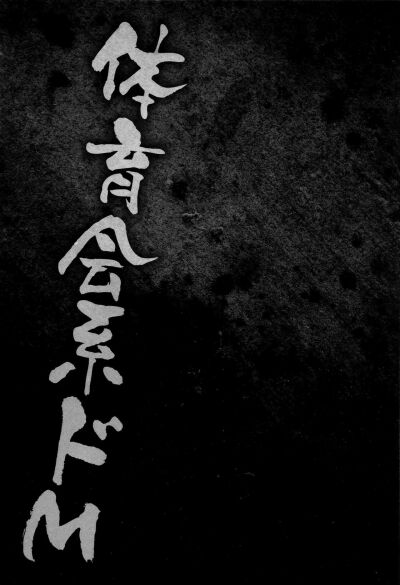 体育会系ドM